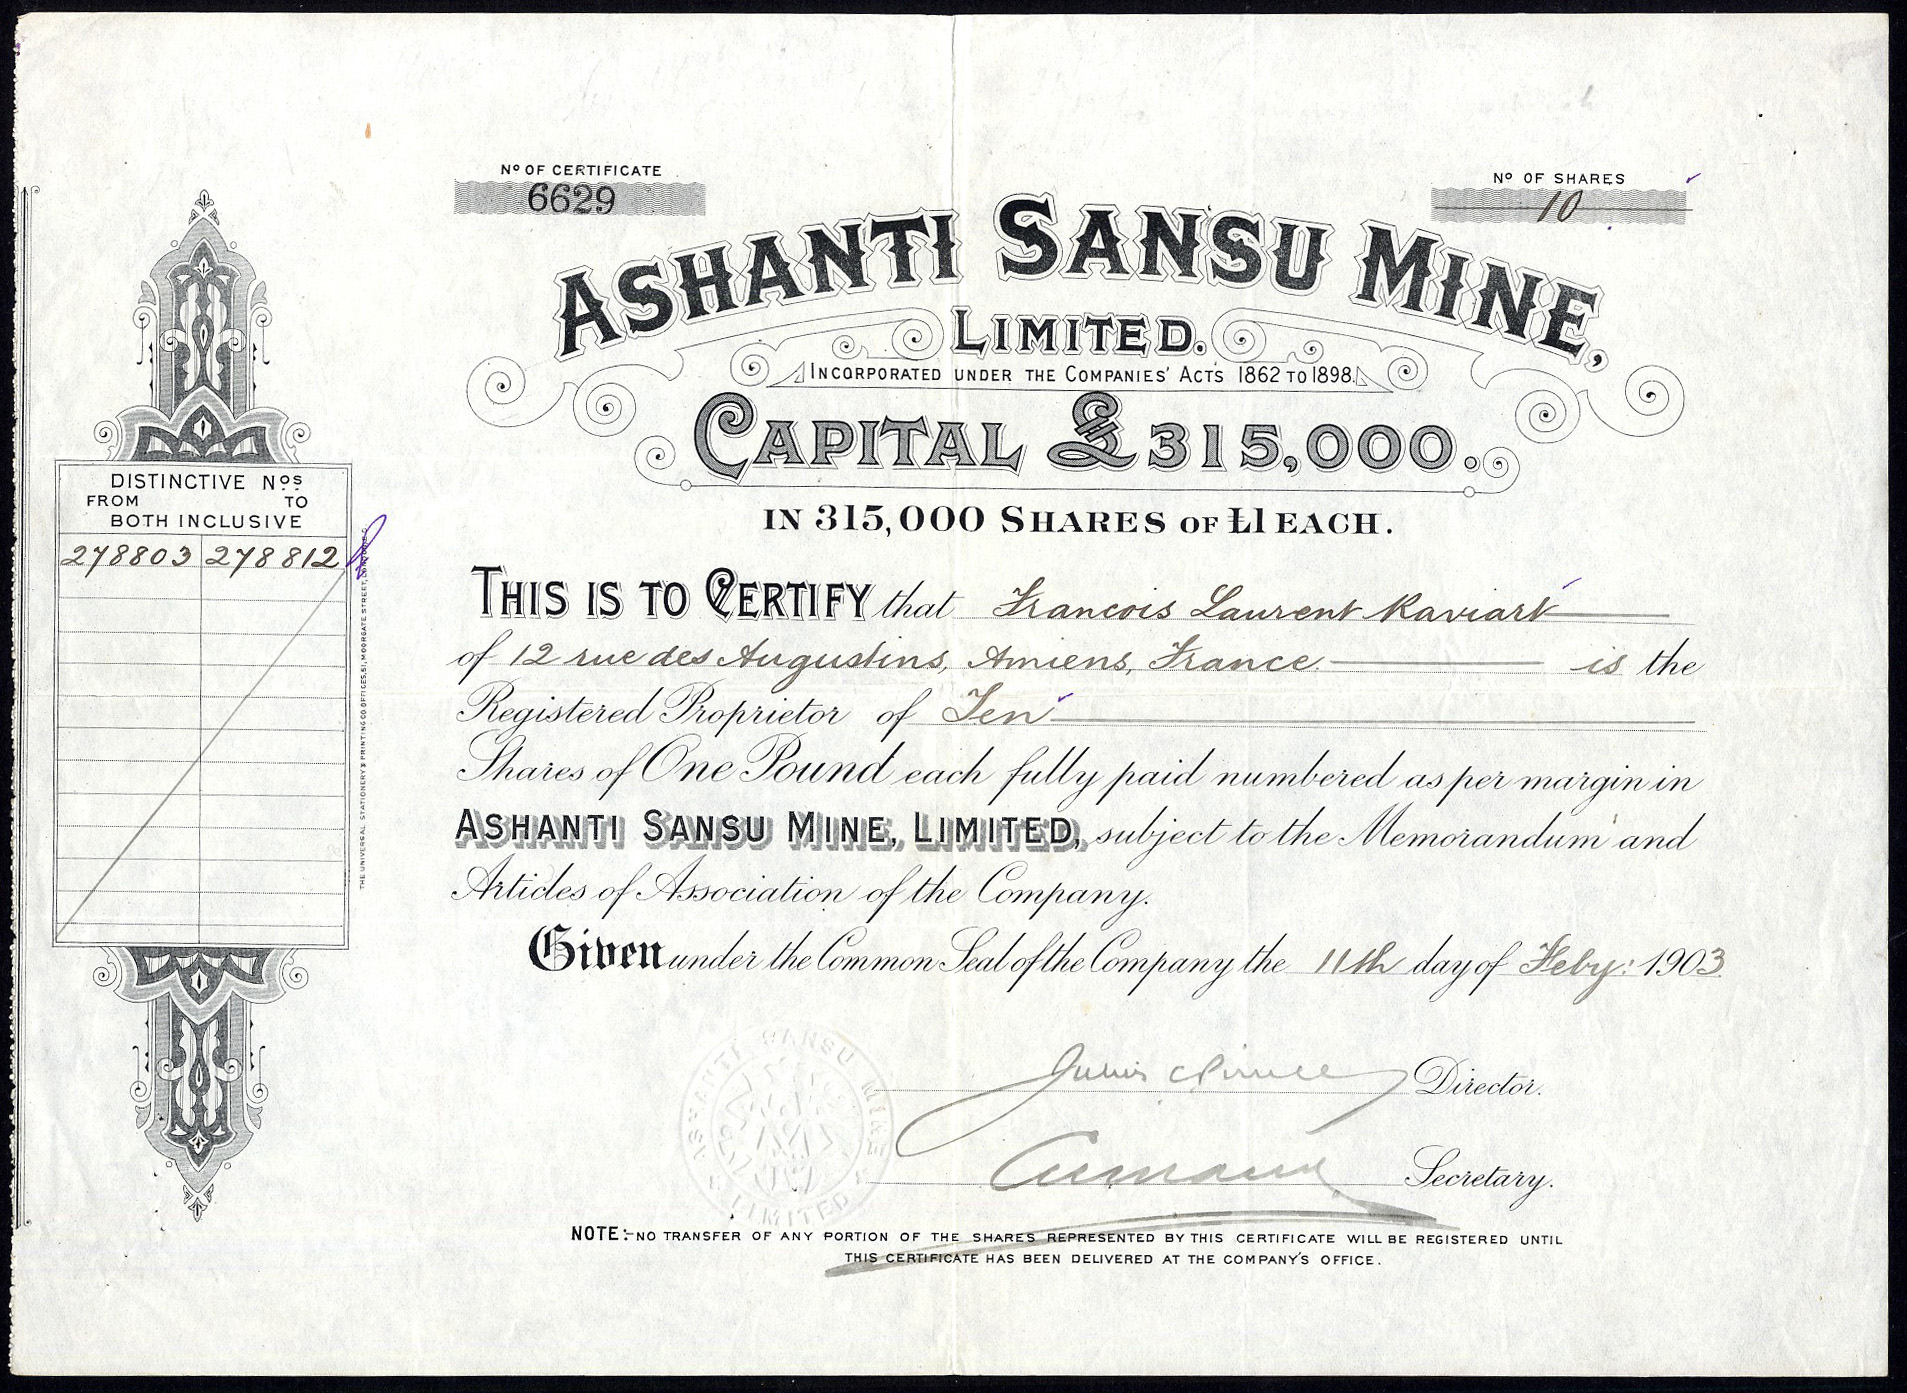 Nº OF CERTIFICATE
6629
Nº OF SHARES
10
ASHANTI SANSU MINE,
LIMITED.
INCORPORATED UNDER THE COMPANIES' ACTS 1862 TO 1898.
CAPITAL £315,000.
IN 315,000 SHARES OF £1 EACH.
DISTINCTIVE Nºs
FROM TO
BOTH INCLUSIVE
278803 278812
THE UNIVERSAL STATIONERY & PRINTING CO. OFFICES, 51, MOORGATE STREET, LONDON
THIS IS TO CERTIFY that Francois Laurent Raviart
of 12 rue des Augustins, Amiens, France. is the
Registered Proprietor of Ten
Shares of One Pound each fully paid numbered as per margin in
ASHANTI SANSU MINE, LIMITED, subject to the Memorandum and
Articles of Association of the Company.
Given under the Common Seal of the Company the 11th day of Feby: 1903
ASHANTI SANSU MINE
LIMITED
Director.
Secretary.
NOTE:- NO TRANSFER OF ANY PORTION OF THE SHARES REPRESENTED BY THIS CERTIFICATE WILL BE REGISTERED UNTIL
THIS CERTIFICATE HAS BEEN DELIVERED AT THE COMPANY'S OFFICE.